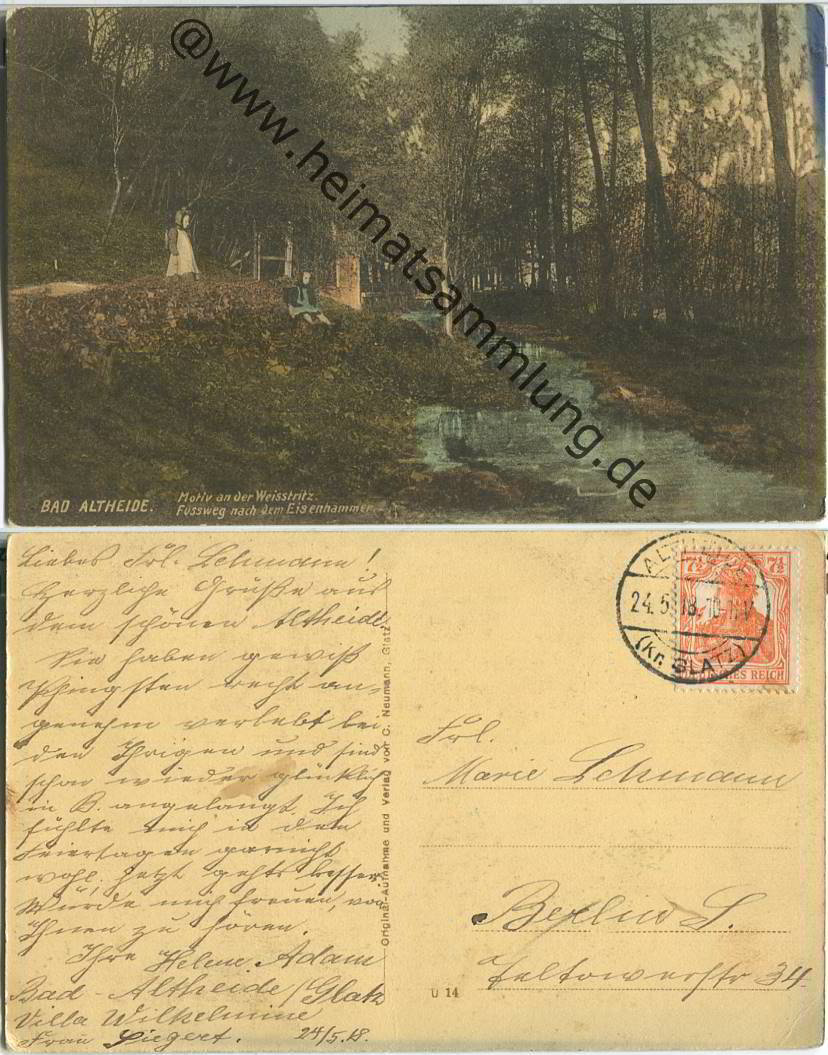 @www.heimatsammlung.de
BAD ALTHEIDE.
Motiv an der Weisstritz.
Fussweg nach dem Eisenhammer
Liebes Frl. Lehmann!
Herzliche Grüße aus
dem schönen Altheide.
Sie haben gewiß
Pfingsten recht an-
genehm verlebt bei
den Ihrigen und sind
schon wieder glücklich
in B. angelangt. Ich
fühlte mich in den
Feiertagen garnicht
wohl. Jetzt gehts besser.
Würde mich freuen, von
Ihnen zu hören.
Ihre Helene Adam
Bad-Altheide/Glatz
Villa Wilhelmine
Frau Siegert. 24/5.18.
Original-Aufnahme und Verlag von C. Neumann, Glatz
ALTHEIDE
24.5.18. 10-11V
(Kr. GLATZ)
7½ 7½
DEUTSCHES REICH
Frl.
Marie Lehmann
Berlin S.
Teltowerstr 34
U 14